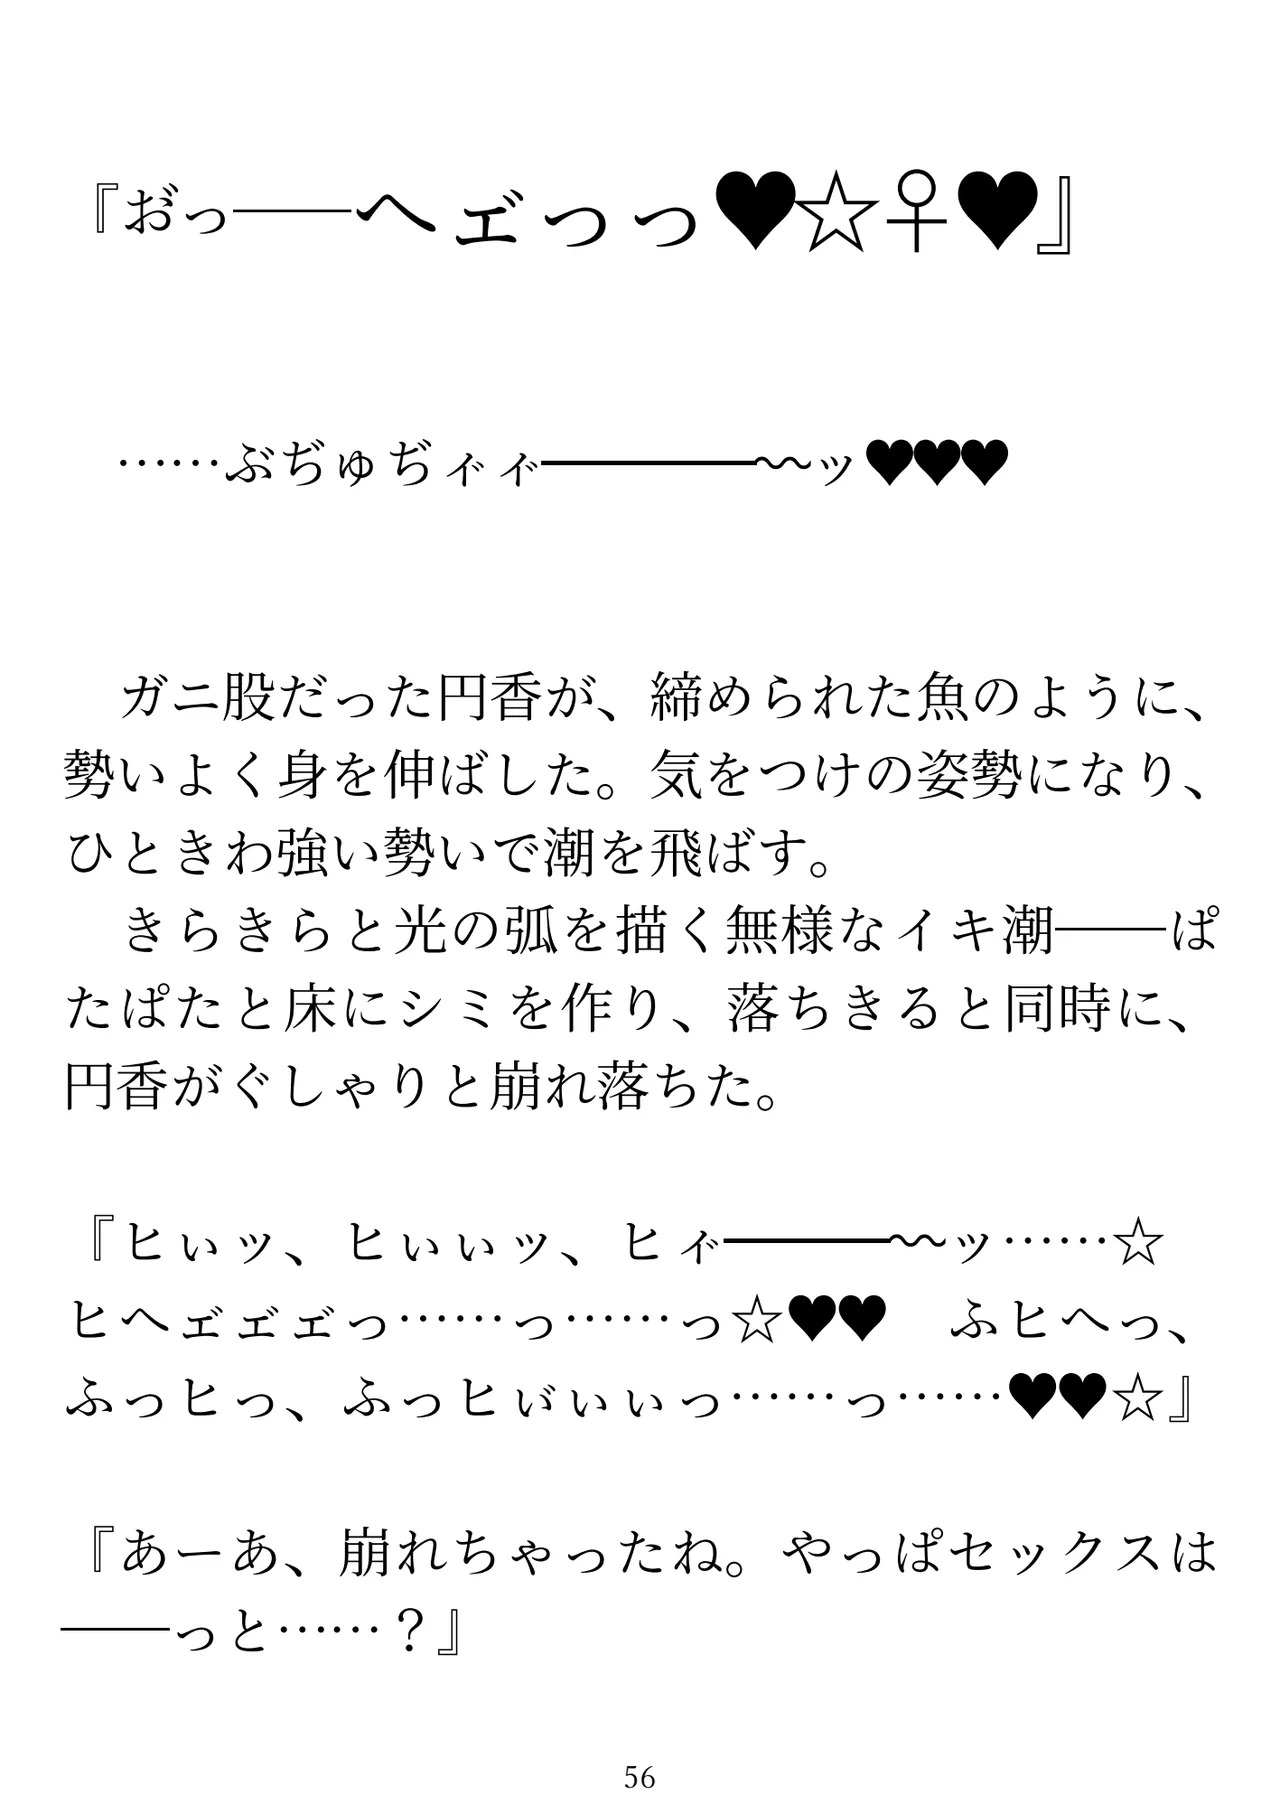 『お゙っ――へェ゙っっ♥☆♀♥』
……ぶぢゅぢィ゙ィ゙――――～ッ♥♥♥
ガニ股だった円香が、締められた魚のように、
勢いよく身を伸ばした。気をつけの姿勢になり、
ひときわ強い勢いで潮を飛ばす。
きらきらと光の弧を描く無様なイキ潮――ぱ
たぱたと床にシミを作り、落ちきると同時に、
円香がぐしゃりと崩れ落ちた。
『ヒぃッ、ヒぃぃッ、ヒィ゙―――～ッ……☆
ヒへェ゙ェ゙ェ゙っ……っ……っ☆♥♥　ふヒへっ、
ふっヒっ、ふっヒぃ゙ぃぃっ……っ……♥♥☆』
『あーあ、崩れちゃったね。やっぱセックスは
――っと……？』
56